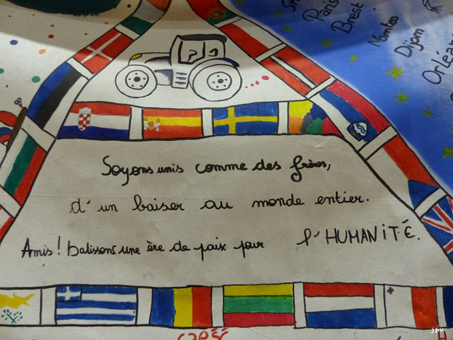 Paris
Brest
Nantes
Dijon
Orléans
Soyons unis comme des frères,
d'un baiser au monde entier.
Amis! batissons une ère de paix pour l'HUMANITÉ.
JPV